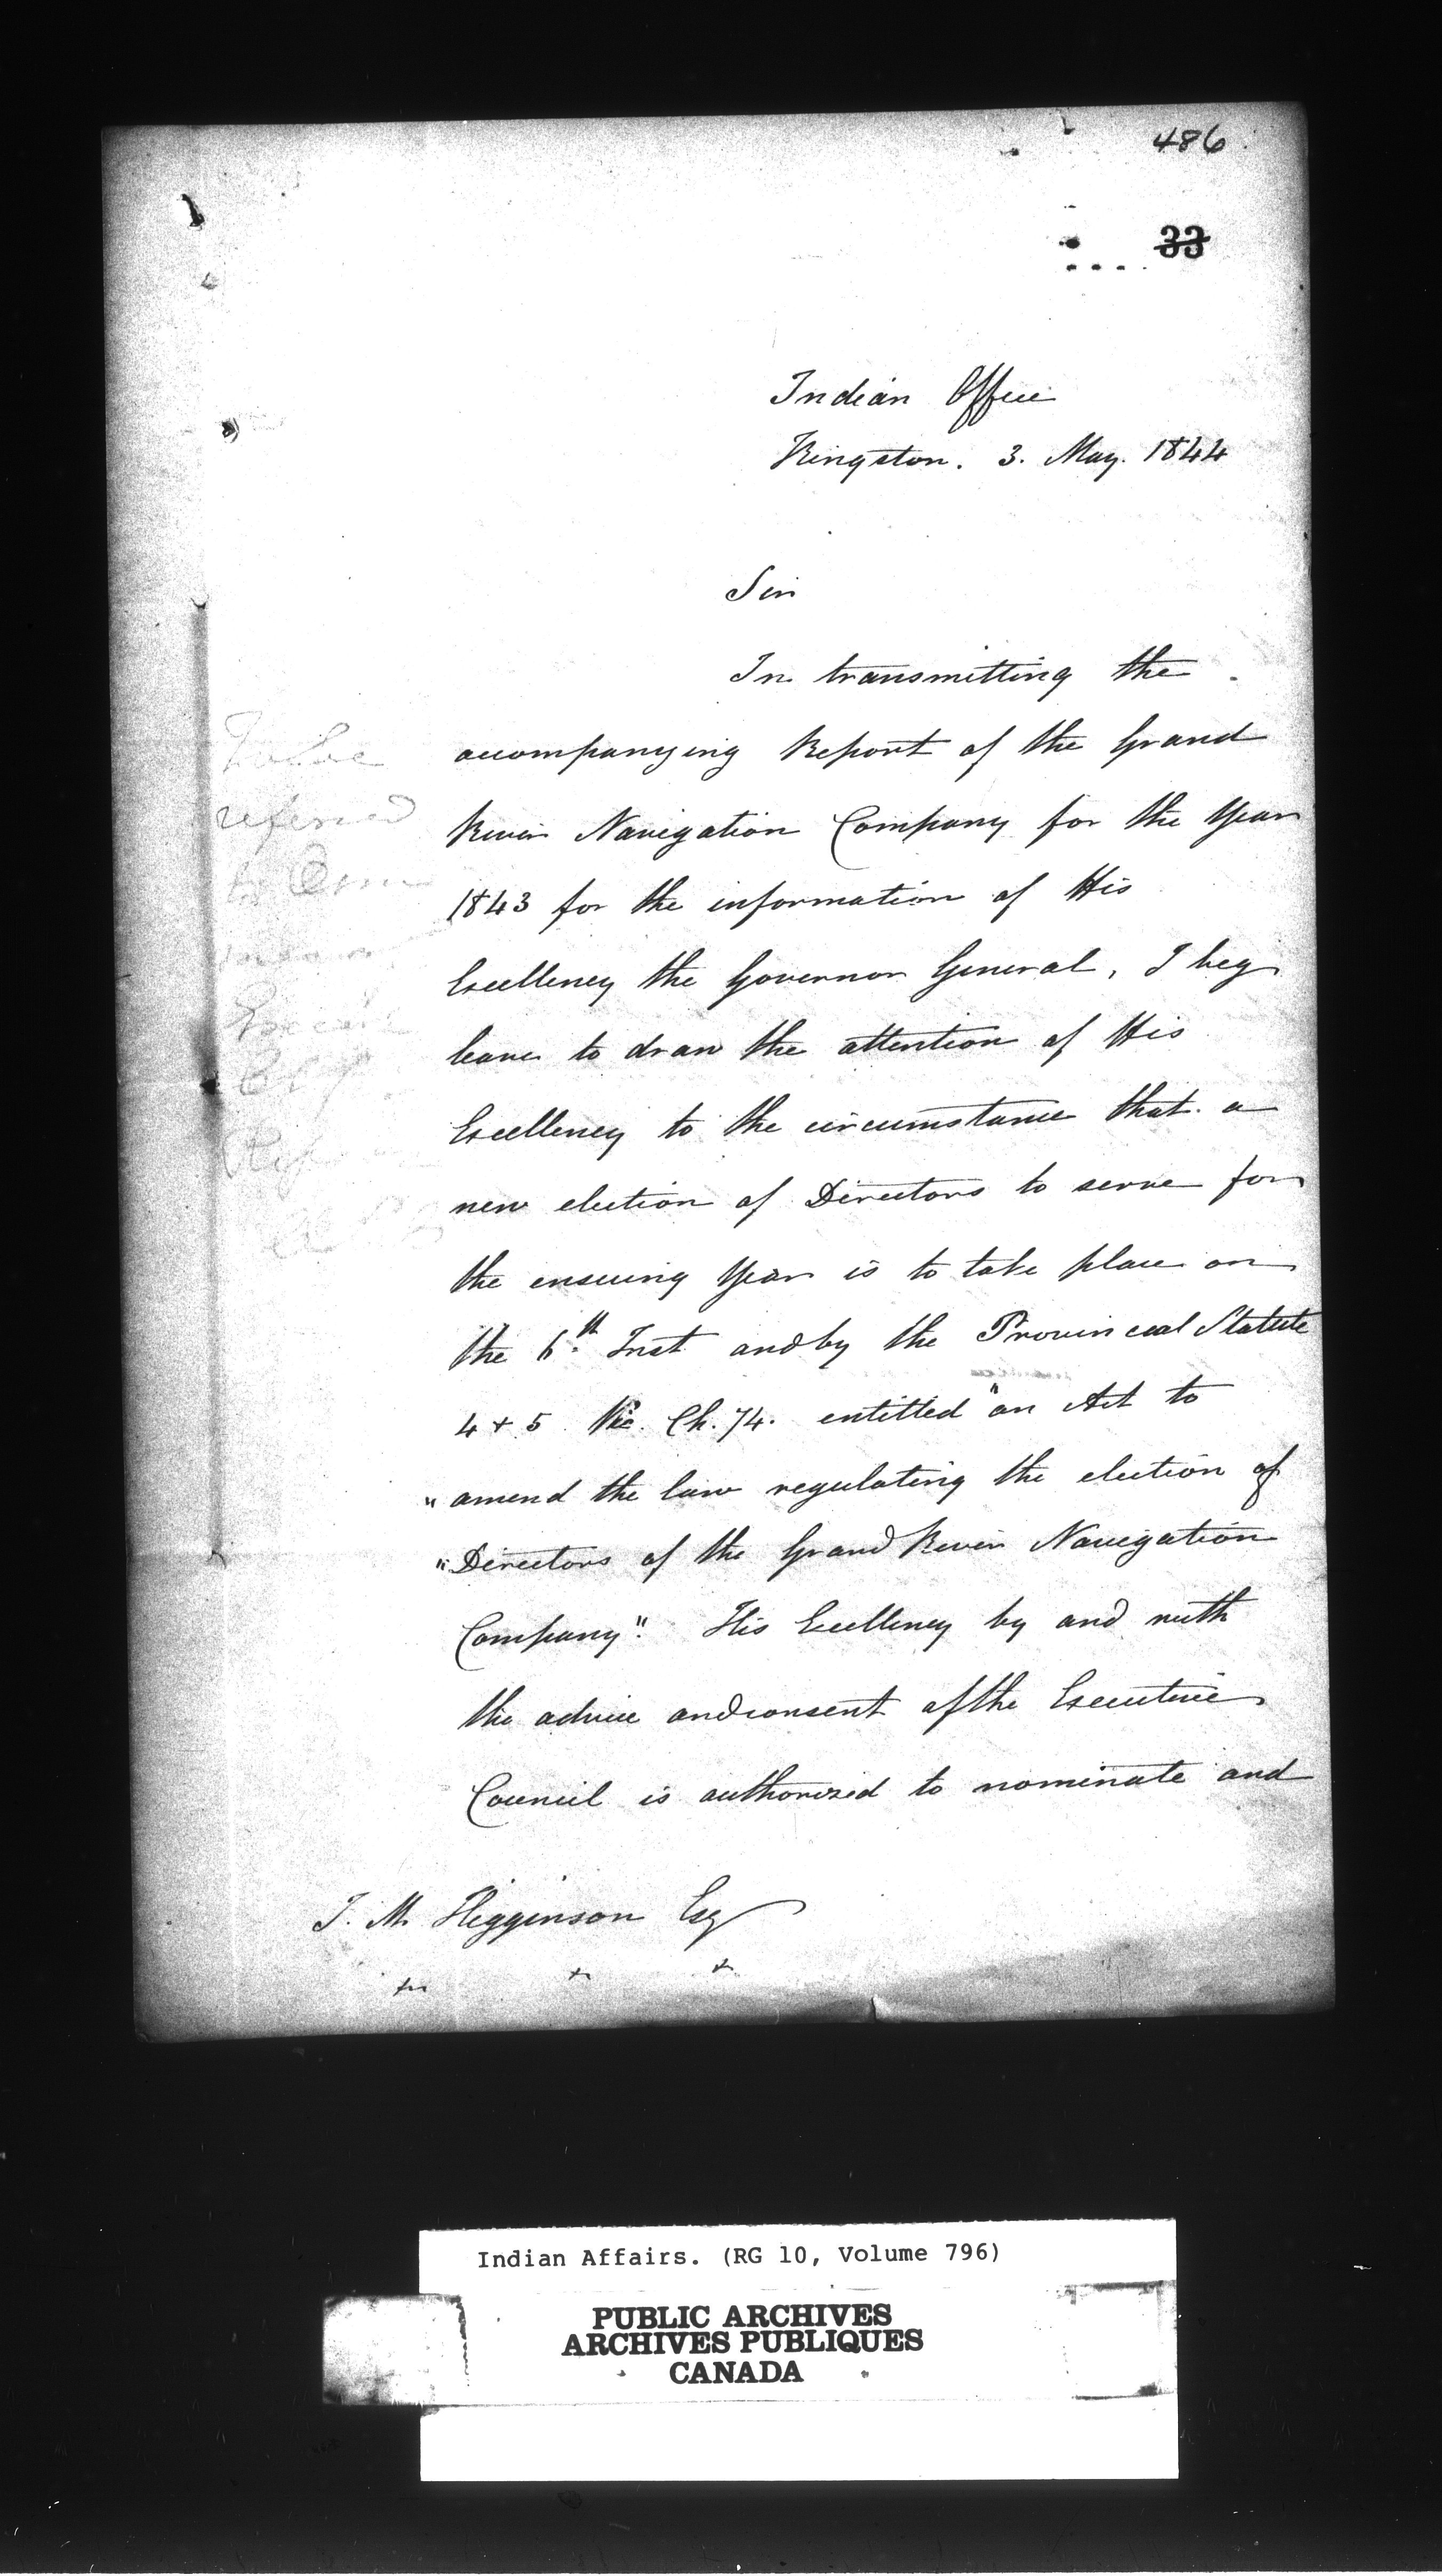 486
33
Indian Office
Kingston. 3. May. 1844
Sir
In transmitting the
accompanying Report of the Grand
River Navigation Company for the Year
1843 for the information of His
Excellency the Governor General, I beg
leave to draw the attention of His
Excellency to the circumstance that a
new election of Directors to serve for
the ensuing Year is to take place on
the 6th Inst and by the Provincial Statute
4 + 5 Vic. Ch. 74. entitled "an Act to
"amend the law regulating the election of
"Directors of the Grand River Navigation
Company". His Excellency by and with
the advice and consent of the Executive
Council is authorized to nominate and
J. M. Higginson Esq
To be
referred
to
Indian Affairs. (RG 10, Volume 796)
PUBLIC ARCHIVES
ARCHIVES PUBLIQUES
CANADA